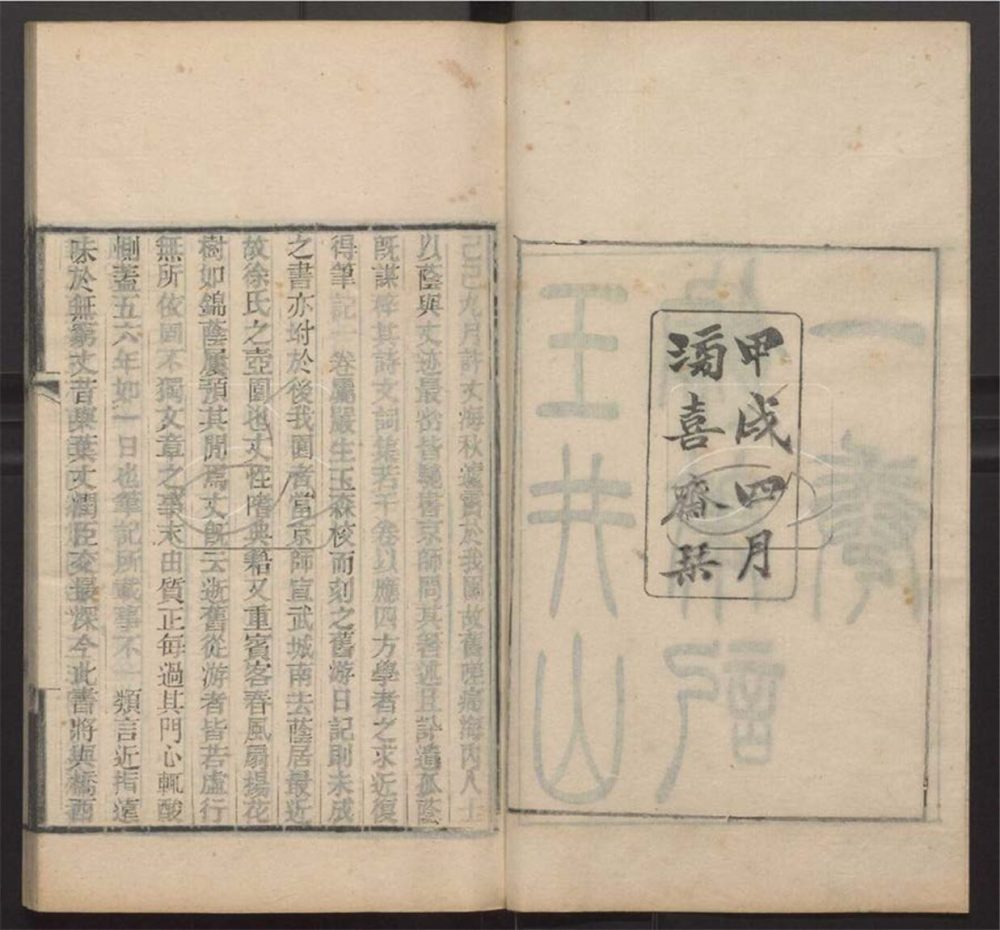 甲戌四月
滂喜齋栞
己巳九月許丈海秋遽於我園故舊痛海内人士
以蔭與丈迹最密皆馳書京師問其著述且計遺孤蔭
既謀梓其詩文詞集若干卷以應四方學者之求近復
得筆記一卷屬嚴生玉森校而刻之舊游日記則未成
之書亦坿於後我園者當京師宣武城南去蔭居最近
故徐氏之壺園也丈性嗜典籍又重賓客春風扇楊花
樹如錦蔭屢預其間焉丈既云逝舊從游者皆若虛行
無所依園不獨文章之事末由質正每過其門心輒酸
惻蓋五六年如一日也筆記所載事不一類言近指遠
味於無窮丈昔與葉丈潤臣交最深今此書將與橋西